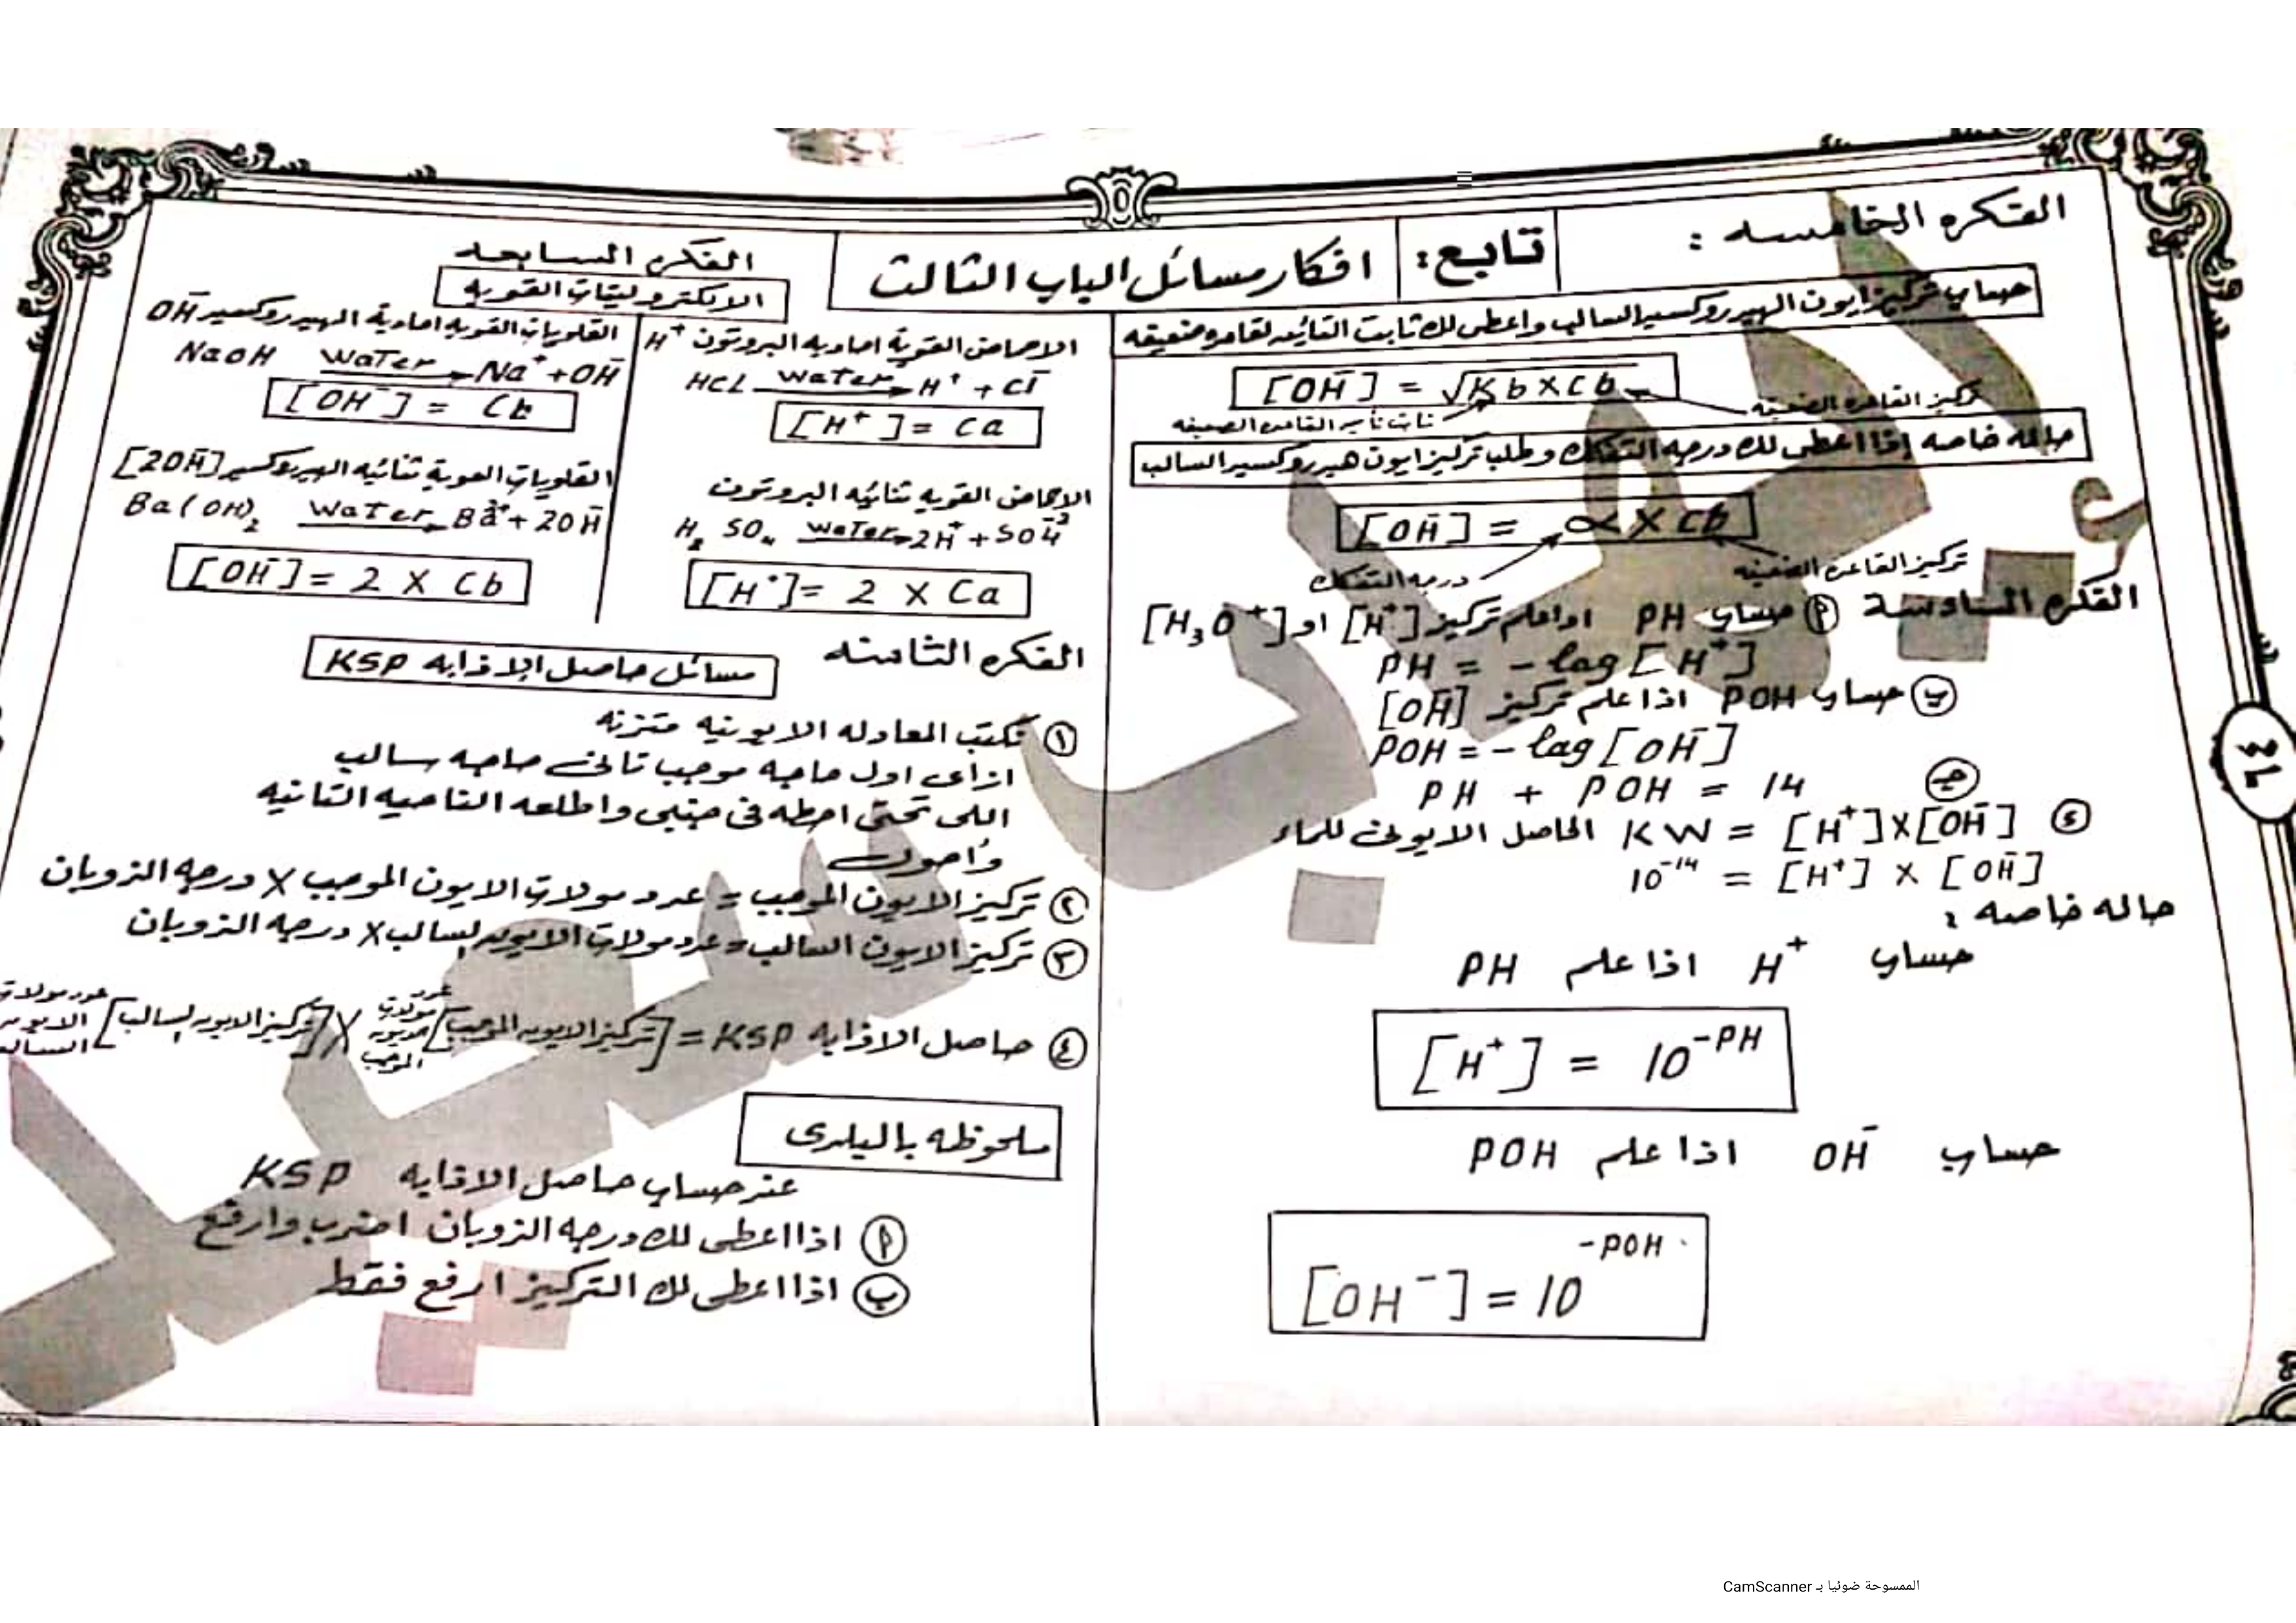 تابع: افكار مسائل الباب الثالث
الفكره الخامسه :
حساب تركيز ايون الهيدروكسيد السالب واعطى لك ثابت التأين لقاعده ضعيفه
[OH⁻] = √Kb X Cb
تركيز القاعده الضعيفه
ثابت تأين القاعده الضعيفه
حاله خاصه إذا اعطى لك درجه التفكك وطلب تركيز ايون هيدروكسيد السالب
[OH⁻] = ∝ X Cb
تركيز القاعده الضعيفه
درجه التفكك
الفكره السادسه (أ) حساب PH اذا علم تركيز [H⁺] او [H₃O⁺]
PH = - lag [H⁺]
(ب) حساب POH اذا علم تركيز [OH⁻]
POH = - lag [OH⁻]
(جـ) PH + POH = 14
(د) KW = [H⁺] X [OH⁻] الحاصل الايونى للماء
10⁻¹⁴ = [H⁺] X [OH⁻]
حاله خاصه :
حساب H⁺ اذا علم PH
[H⁺] = 10⁻ᴾᴴ
حساب OH⁻ اذا علم POH
[OH⁻] = 10⁻ᴾᴼᴴ
الفكره السابعه
الالكتروليتات القويه
الاحماض القويه احاديه البروتون H⁺
HCL water→ H⁺ + Cl⁻
[H⁺] = Ca
الاحماض القويه ثنائيه البروتون
H₂SO₄ water→ 2H⁺ + SO₄⁻²
[H⁺] = 2 X Ca
القلويات القويه احادية الهيدروكسيد OH⁻
NaOH water→ Na⁺ + OH⁻
[OH⁻] = Cb
القلويات القوية ثنائيه الهيدروكسيد [2OH⁻]
Ba(OH)₂ water→ Ba²⁺ + 2OH⁻
[OH⁻] = 2 X Cb
الفكره الثامنه
مسائل حاصل الاذابه KSP
(١) نكتب المعادله الايونيه متزنه
ازاى اول حاجه موجب تانى حاجه سالب
اللى تحتى احطه فى جنبى واطلعه الناحيه التانيه
(٢) تركيز الايون الموجب = عدد مولات الايون الموجب X درجه الذوبان
(٣) تركيز الايون السالب = عدد مولات الايون السالب X درجه الذوبان
(٤) حاصل الاذابه KSP = [تركيز الايون الموجب] عدد مولات الايون الموجب X [تركيز الايون السالب] عدد مولات الايون السالب
ملحوظه بالبلدى
عند حساب حاصل الاذابه KSP
(أ) اذا اعطى لك درجه الذوبان اضرب وارفع
(ب) اذا اعطى لك التركيز ارفع فقط
الممسوحة ضوئيا بـ CamScanner